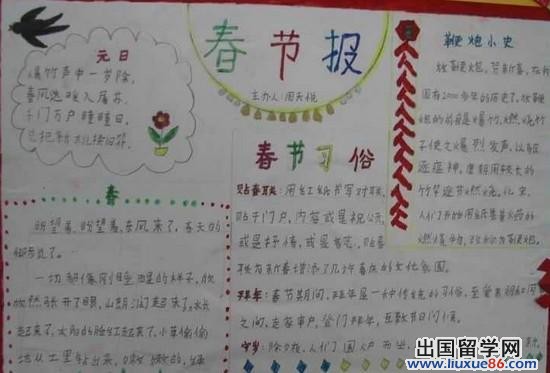 元日
爆竹声中一岁除,
春风送暖入屠苏,
千门万户曈曈日,
总把新桃换旧符。
春节报
主办人:周天悦
鞭炮小史
放鞭炮,贺新春,在我
国有2000多年的历史了。放鞭
炮的前身是爆竹,燃烧竹
子使之爆烈发声,以驱
逐瘟神。唐朝用较长的
竹竿逐节燃烧。北宋,
人们开始用纸
燃爆物,
春节习俗
贴春联:用红纸书写对联,
贴于门户,内容或是祝
或是抒情,或是书志,贴春
联为新春增添了几许喜庆的文化氛围。
拜年:春节期间,拜年是一种传统的习俗,至爱亲朋
之间,走家串户,登门拜年,互致节日问候。
守岁:除夕夜,人们
春
盼望着,盼望着,东风来了,春天的
脚步近了。
一切都像刚睡醒的样子,欣
欣然张开了眼,山朗润起来了,水长
起来了,太阳的脸红起来了。小草偷偷
地从土里钻出来,嫩嫩的,绿
出国留学网
www.liuxue86.com